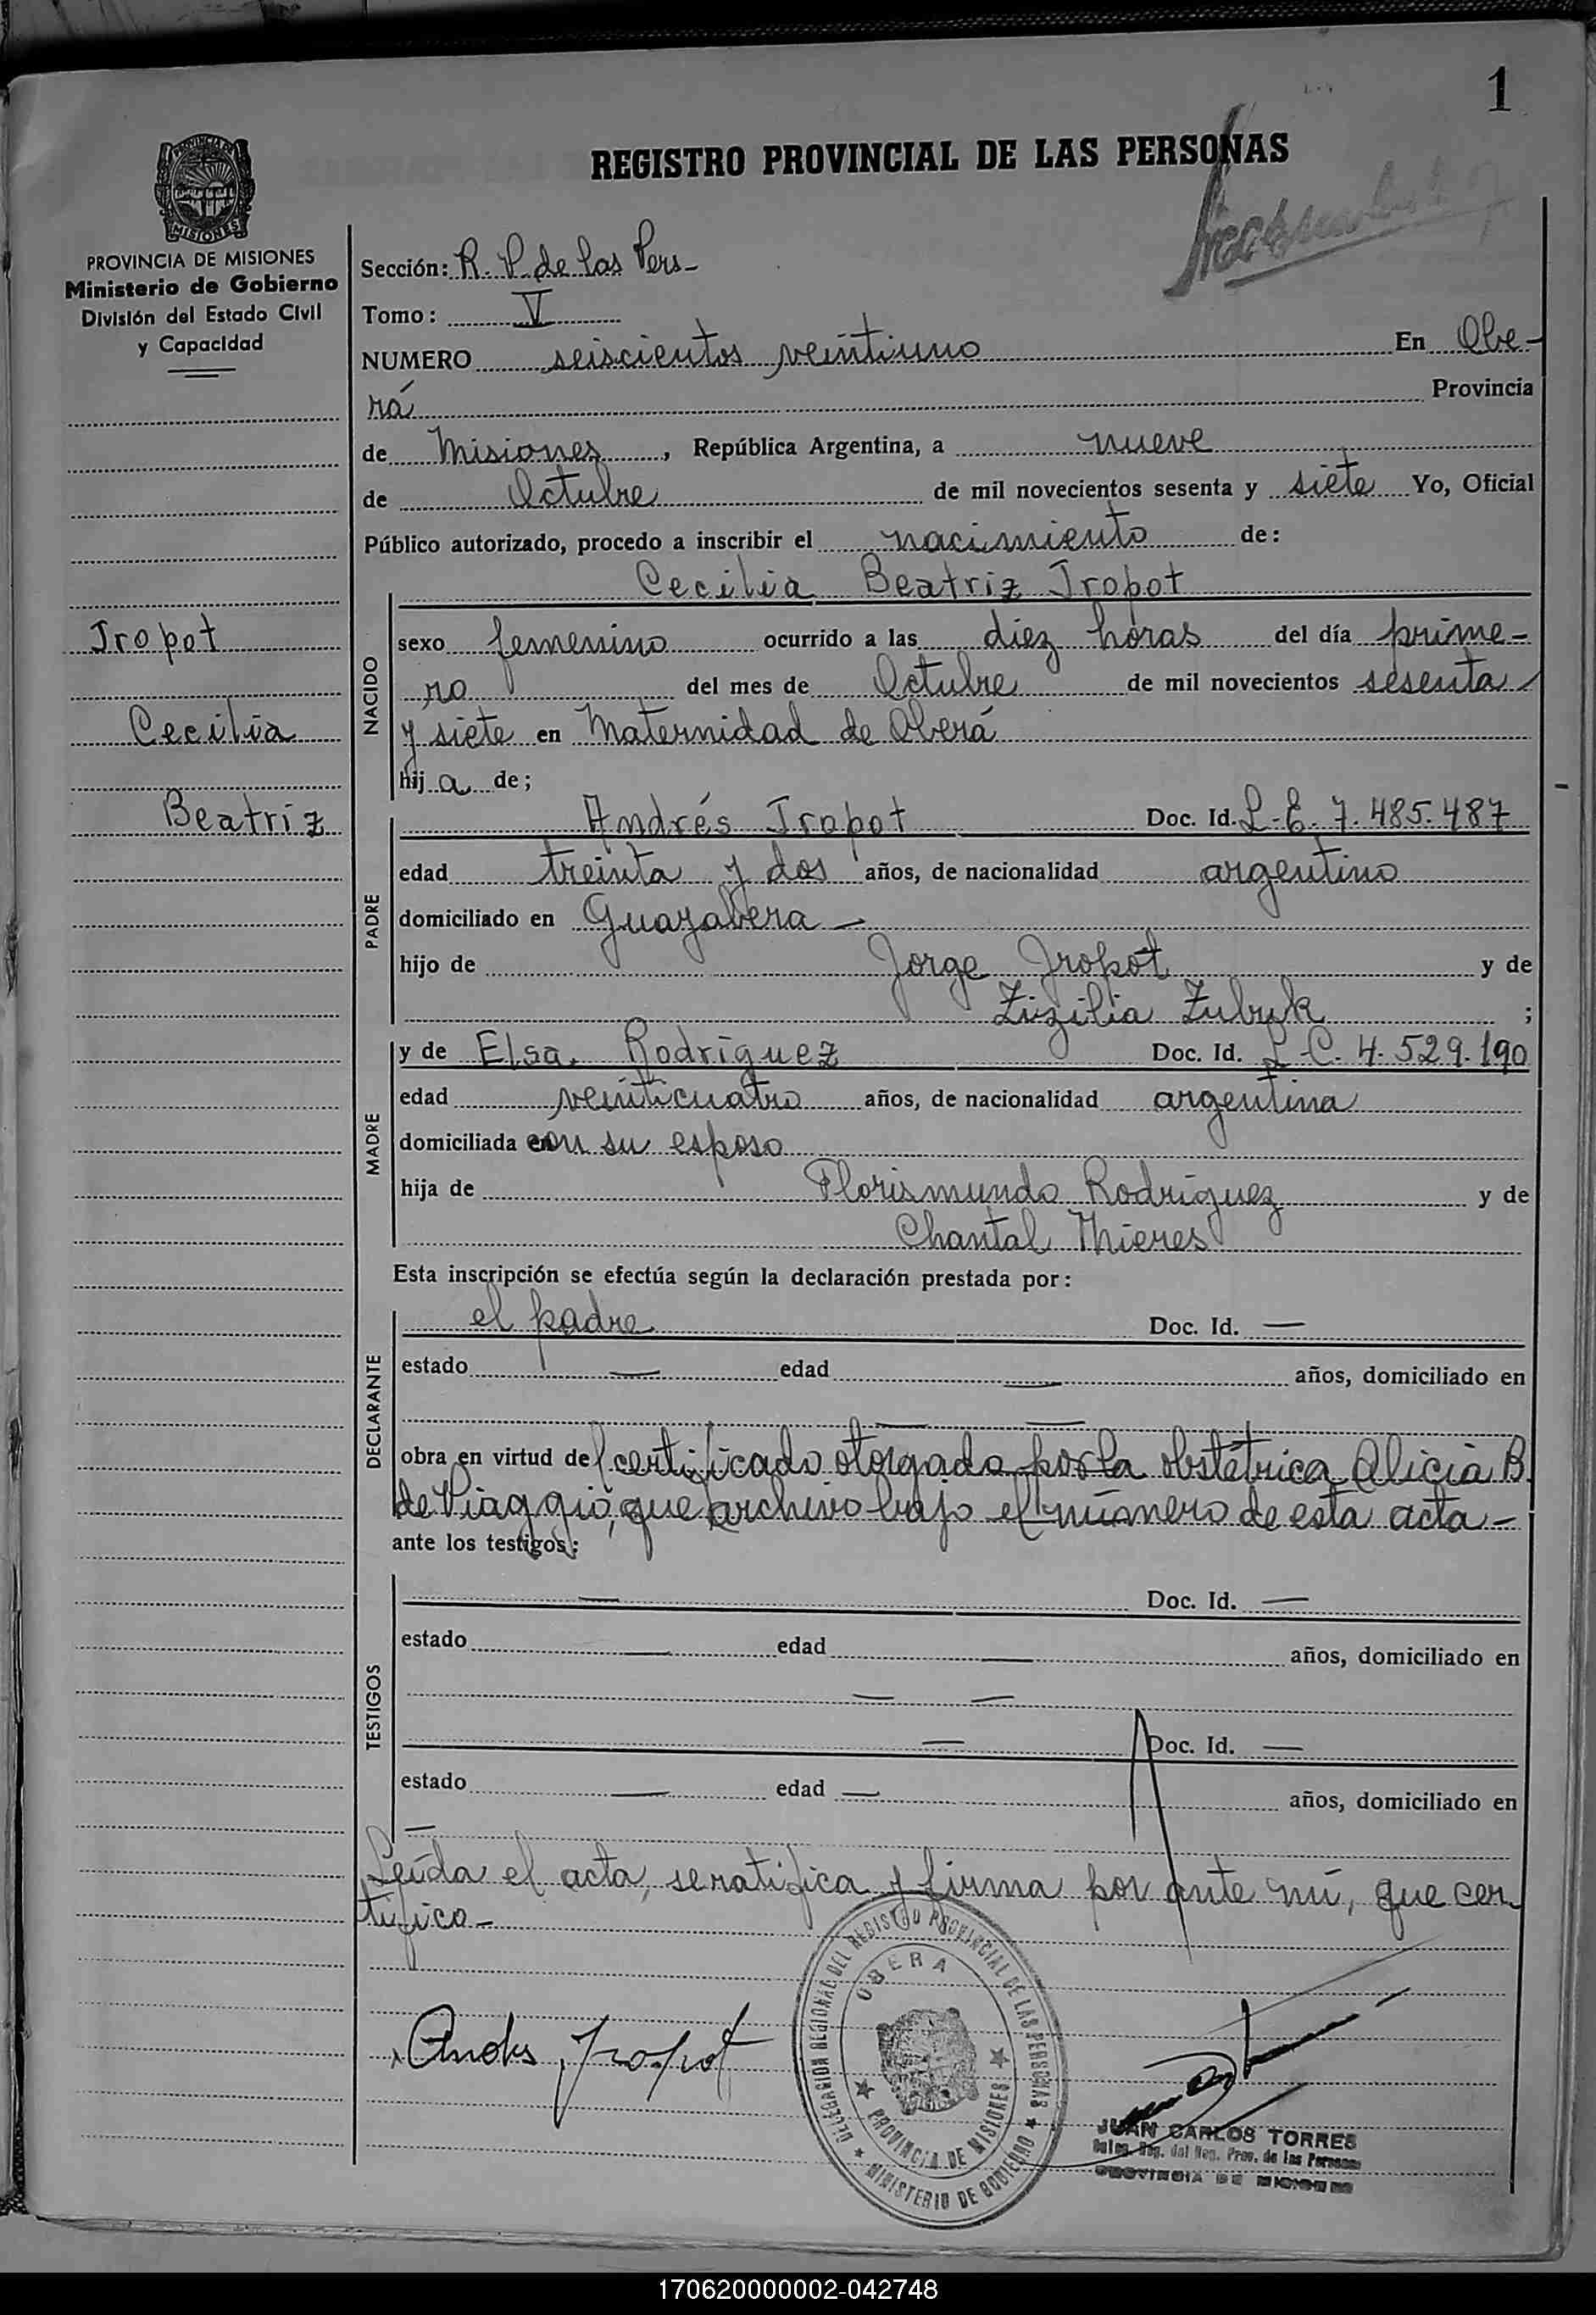 1
REGISTRO PROVINCIAL DE LAS PERSONAS
PROVINCIA DE MISIONES
Ministerio de Gobierno
División del Estado Civil
y Capacidad
Sección: R. P. de las Pers-
Tomo: V
NUMERO seiscientos veintiuno En Obe-
rá Provincia
de Misiones, República Argentina, a nueve
de Octubre de mil novecientos sesenta y siete Yo, Oficial
Público autorizado, procedo a inscribir el nacimiento de:
Cecilia Beatriz Tropot
Tropot
Cecilia
Beatriz
NACIDO
sexo femenino ocurrido a las diez horas del día prime-
ro del mes de Octubre de mil novecientos sesenta
y siete en Maternidad de Oberá
hija de;
PADRE
Andrés Tropot Doc. Id. L-E. 7.485.487
edad treinta y dos años, de nacionalidad argentino
domiciliado en Guayabera -
hijo de Jorge Tropot y de
Zizilia Zubrik ;
MADRE
y de Elsa Rodríguez Doc. Id. L-C. 4.529.190
edad veinticuatro años, de nacionalidad argentina
domiciliada en con su esposo
hija de Florismundo Rodríguez y de
Chantal Thieres
Esta inscripción se efectúa según la declaración prestada por:
DECLARANTE
el padre Doc. Id. —
estado — edad — años, domiciliado en
— —
obra en virtud del certificado otorgado por la obstétrica Alicia B.
de Viaggio, que archivo bajo el número de esta acta -
ante los testigos:
TESTIGOS
— Doc. Id. —
estado — edad — años, domiciliado en
— —
— Doc. Id. —
estado — edad — años, domiciliado en
—
Leída el acta, se ratifica y firma por ante mí, que cer
tifico -
Andrés Tropot
DELEGACION REGIONAL DEL REGISTRO PROVINCIAL DE LAS PERSONAS
OBERA
PROVINCIA DE MISIONES
MINISTERIO DE GOBIERNO
JUAN CARLOS TORRES
Reg. del Reg. Prov. de las Personas
PROVINCIA DE MISIONES
170620000002-042748